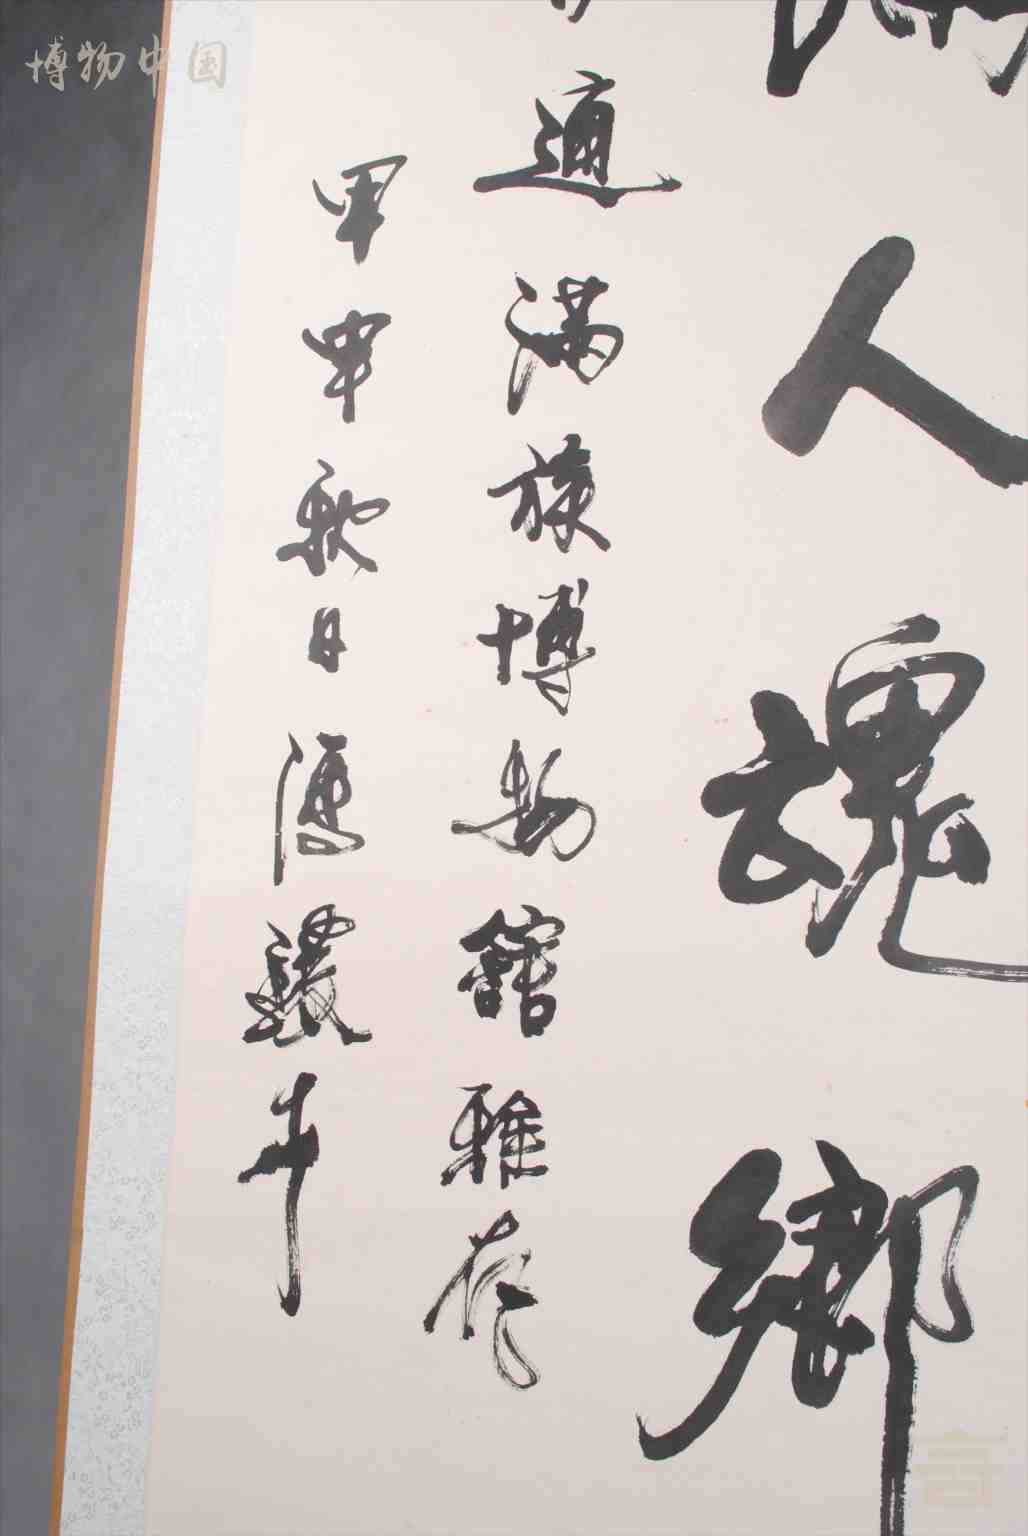 人魂鄉
通滿族博物館雅存
甲申秋日
博物中国